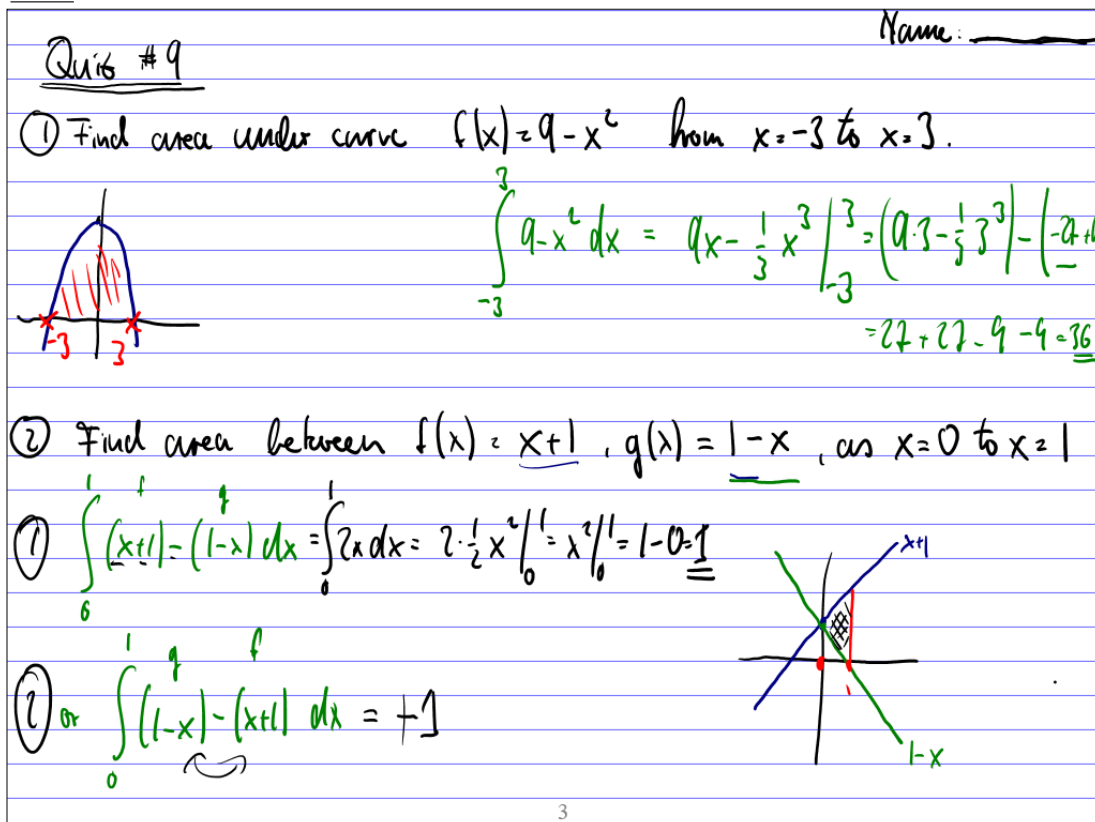 Name:
Quiz #9
① Find area under curve f(x) = 9 - x² from x = -3 to x = 3.
∫₋₃³ 9 - x² dx = 9x - 1/3 x³ |₋₃³ = (9·3 - 1/3 3³) - (-27+
= 27 + 27 - 9 - 9 = 36
-3 3
② Find area between f(x) = x+1, g(x) = 1-x, as x=0 to x=1
f g
① ∫₀¹ (x+1) - (1-x) dx = ∫₀¹ 2x dx = 2·1/2 x² |₀¹ = x² |₀¹ = 1-0 = 1
x+1
g f
② or ∫₀¹ (1-x) - (x+1) dx = +1
1
1-x
3